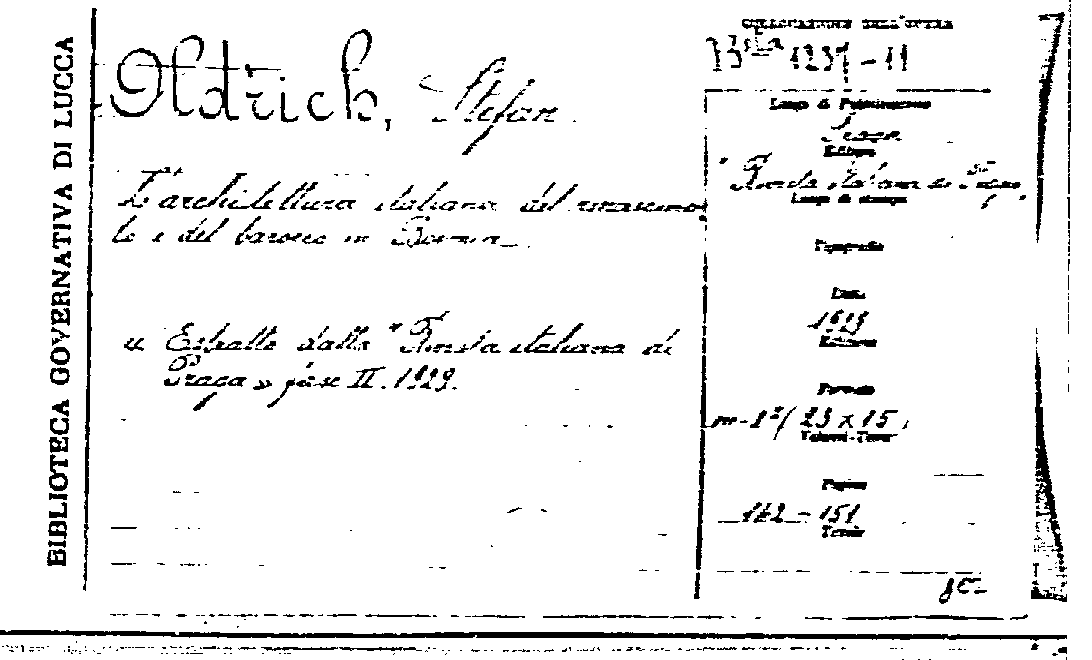 BIBLIOTECA GOVERNATIVA DI LUCCA
Oldrich, Stefan.
L'architettura italiana del rinascimen-
to e del barocco in Boemia.
« Estratto dalla "Rivista italiana di
Praga » fasc II. 1929.
COLLOCAZIONE DELL'OPERA
1237 - 11
Luogo di Pubblicazione
Praga
Editore
"Rivista italiana di Praga"
Luogo di stampa
Tipografia
Data
Edizione
Formato
23 x 15
Volumi-Tomi
Pagine
151
Tavole